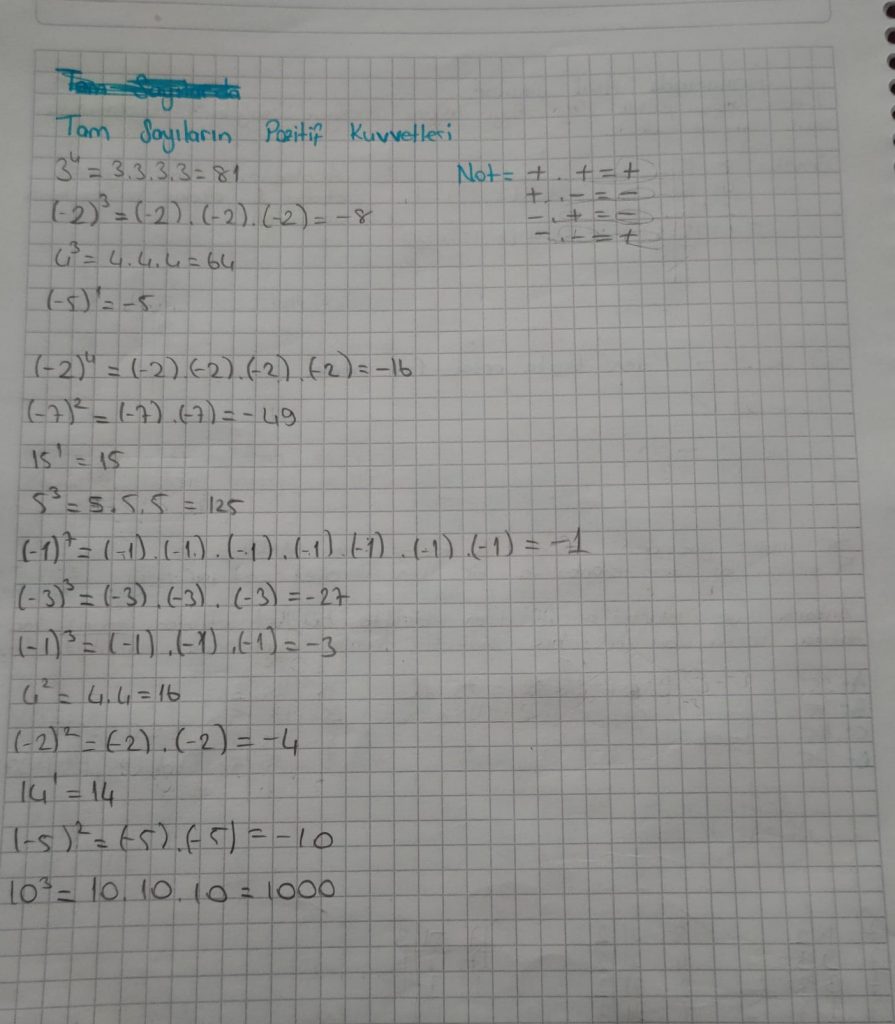 Tam Sayılarda
Tam Sayıların Pozitif Kuvvetleri
3⁴ = 3.3.3.3 = 81
Not = + . + = +
+ . - = -
- . + = -
- . - = +
(-2)³ = (-2) . (-2) . (-2) = -8
4³ = 4.4.4 = 64
(-5)¹ = -5
(-2)⁴ = (-2).(-2).(-2).(-2) = -16
(-7)² = (-7) . (-7) = -49
15¹ = 15
5³ = 5.5.5 = 125
(-1)⁷ = (-1) . (-1) . (-1) . (-1) . (-1) . (-1) . (-1) = -1
(-3)³ = (-3) . (-3) . (-3) = -27
(-1)³ = (-1) . (-1) . (-1) = -3
4² = 4.4 = 16
(-2)² = (-2) . (-2) = -4
14¹ = 14
(-5)² = (-5) . (-5) = -10
10³ = 10.10.10 = 1000